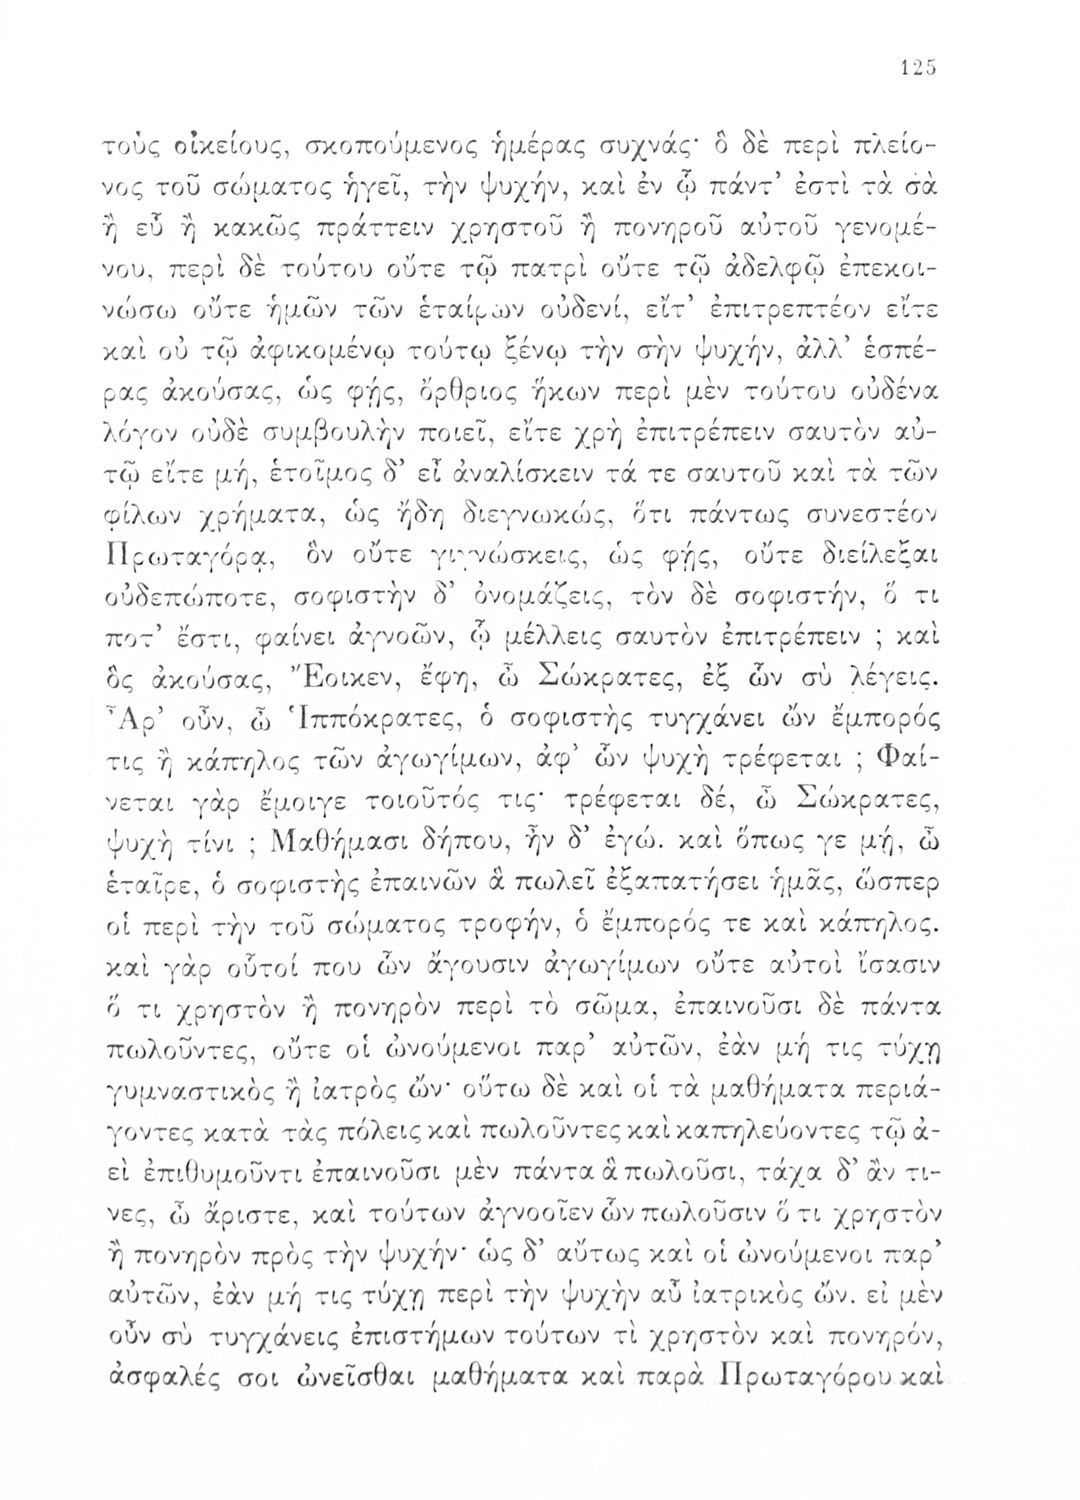 125
τοὺς οἰκείους, σκοπούμενος ἡμέρας συχνάς· ὃ δὲ περὶ πλείο-
νος τοῦ σώματος ἡγεῖ, τὴν ψυχήν, καὶ ἐν ᾧ πάντ’ ἐστὶ τὰ σὰ
ἢ εὖ ἢ κακῶς πράττειν χρηστοῦ ἢ πονηροῦ αὐτοῦ γενομέ-
νου, περὶ δὲ τούτου οὔτε τῷ πατρὶ οὔτε τῷ ἀδελφῷ ἐπεκοι-
νώσω οὔτε ἡμῶν τῶν ἑταίρων οὐδενί, εἴτ’ ἐπιτρεπτέον εἴτε
καὶ οὐ τῷ ἀφικομένῳ τούτῳ ξένῳ τὴν σὴν ψυχήν, ἀλλ’ ἑσπέ-
ρας ἀκούσας, ὡς φῄς, ὄρθριος ἥκων περὶ μὲν τούτου οὐδένα
λόγον οὐδὲ συμβουλὴν ποιεῖ, εἴτε χρὴ ἐπιτρέπειν σαυτὸν αὐ-
τῷ εἴτε μή, ἑτοῖμος δ’ εἶ ἀναλίσκειν τά τε σαυτοῦ καὶ τὰ τῶν
φίλων χρήματα, ὡς ἤδη διεγνωκώς, ὅτι πάντως συνεστέον
Πρωταγόρᾳ, ὃν οὔτε γιγνώσκεις, ὡς φῄς, οὔτε διείλεξαι
οὐδεπώποτε, σοφιστὴν δ’ ὀνομάζεις, τὸν δὲ σοφιστήν, ὅ τι
ποτ’ ἔστι, φαίνει ἀγνοῶν, ᾧ μέλλεις σαυτὸν ἐπιτρέπειν ; καὶ
ὃς ἀκούσας, Ἔοικεν, ἔφη, ὦ Σώκρατες, ἐξ ὧν σὺ λέγεις.
Ἆρ’ οὖν, ὦ Ἱππόκρατες, ὁ σοφιστὴς τυγχάνει ὢν ἔμπορός
τις ἢ κάπηλος τῶν ἀγωγίμων, ἀφ’ ὧν ψυχὴ τρέφεται ; Φαί-
νεται γὰρ ἔμοιγε τοιοῦτός τις· τρέφεται δέ, ὦ Σώκρατες,
ψυχὴ τίνι ; Μαθήμασι δήπου, ἦν δ’ ἐγώ. καὶ ὅπως γε μή, ὦ
ἑταῖρε, ὁ σοφιστὴς ἐπαινῶν ἃ πωλεῖ ἐξαπατήσει ἡμᾶς, ὥσπερ
οἱ περὶ τὴν τοῦ σώματος τροφήν, ὁ ἔμπορός τε καὶ κάπηλος.
καὶ γὰρ οὗτοί που ὧν ἄγουσιν ἀγωγίμων οὔτε αὐτοὶ ἴσασιν
ὅ τι χρηστὸν ἢ πονηρὸν περὶ τὸ σῶμα, ἐπαινοῦσι δὲ πάντα
πωλοῦντες, οὔτε οἱ ὠνούμενοι παρ’ αὐτῶν, ἐὰν μή τις τύχῃ
γυμναστικὸς ἢ ἰατρὸς ὤν· οὕτω δὲ καὶ οἱ τὰ μαθήματα περιά-
γοντες κατὰ τὰς πόλεις καὶ πωλοῦντες καὶ καπηλεύοντες τῷ ἀ-
εὶ ἐπιθυμοῦντι ἐπαινοῦσι μὲν πάντα ἃ πωλοῦσι, τάχα δ’ ἄν τι-
νες, ὦ ἄριστε, καὶ τούτων ἀγνοοῖεν ὧν πωλοῦσιν ὅ τι χρηστὸν
ἢ πονηρὸν πρὸς τὴν ψυχήν· ὡς δ’ αὔτως καὶ οἱ ὠνούμενοι παρ’
αὐτῶν, ἐὰν μή τις τύχῃ περὶ τὴν ψυχὴν αὖ ἰατρικὸς ὤν. εἰ μὲν
οὖν σὺ τυγχάνεις ἐπιστήμων τούτων τὶ χρηστὸν καὶ πονηρόν,
ἀσφαλές σοι ὠνεῖσθαι μαθήματα καὶ παρὰ Πρωταγόρου καὶ